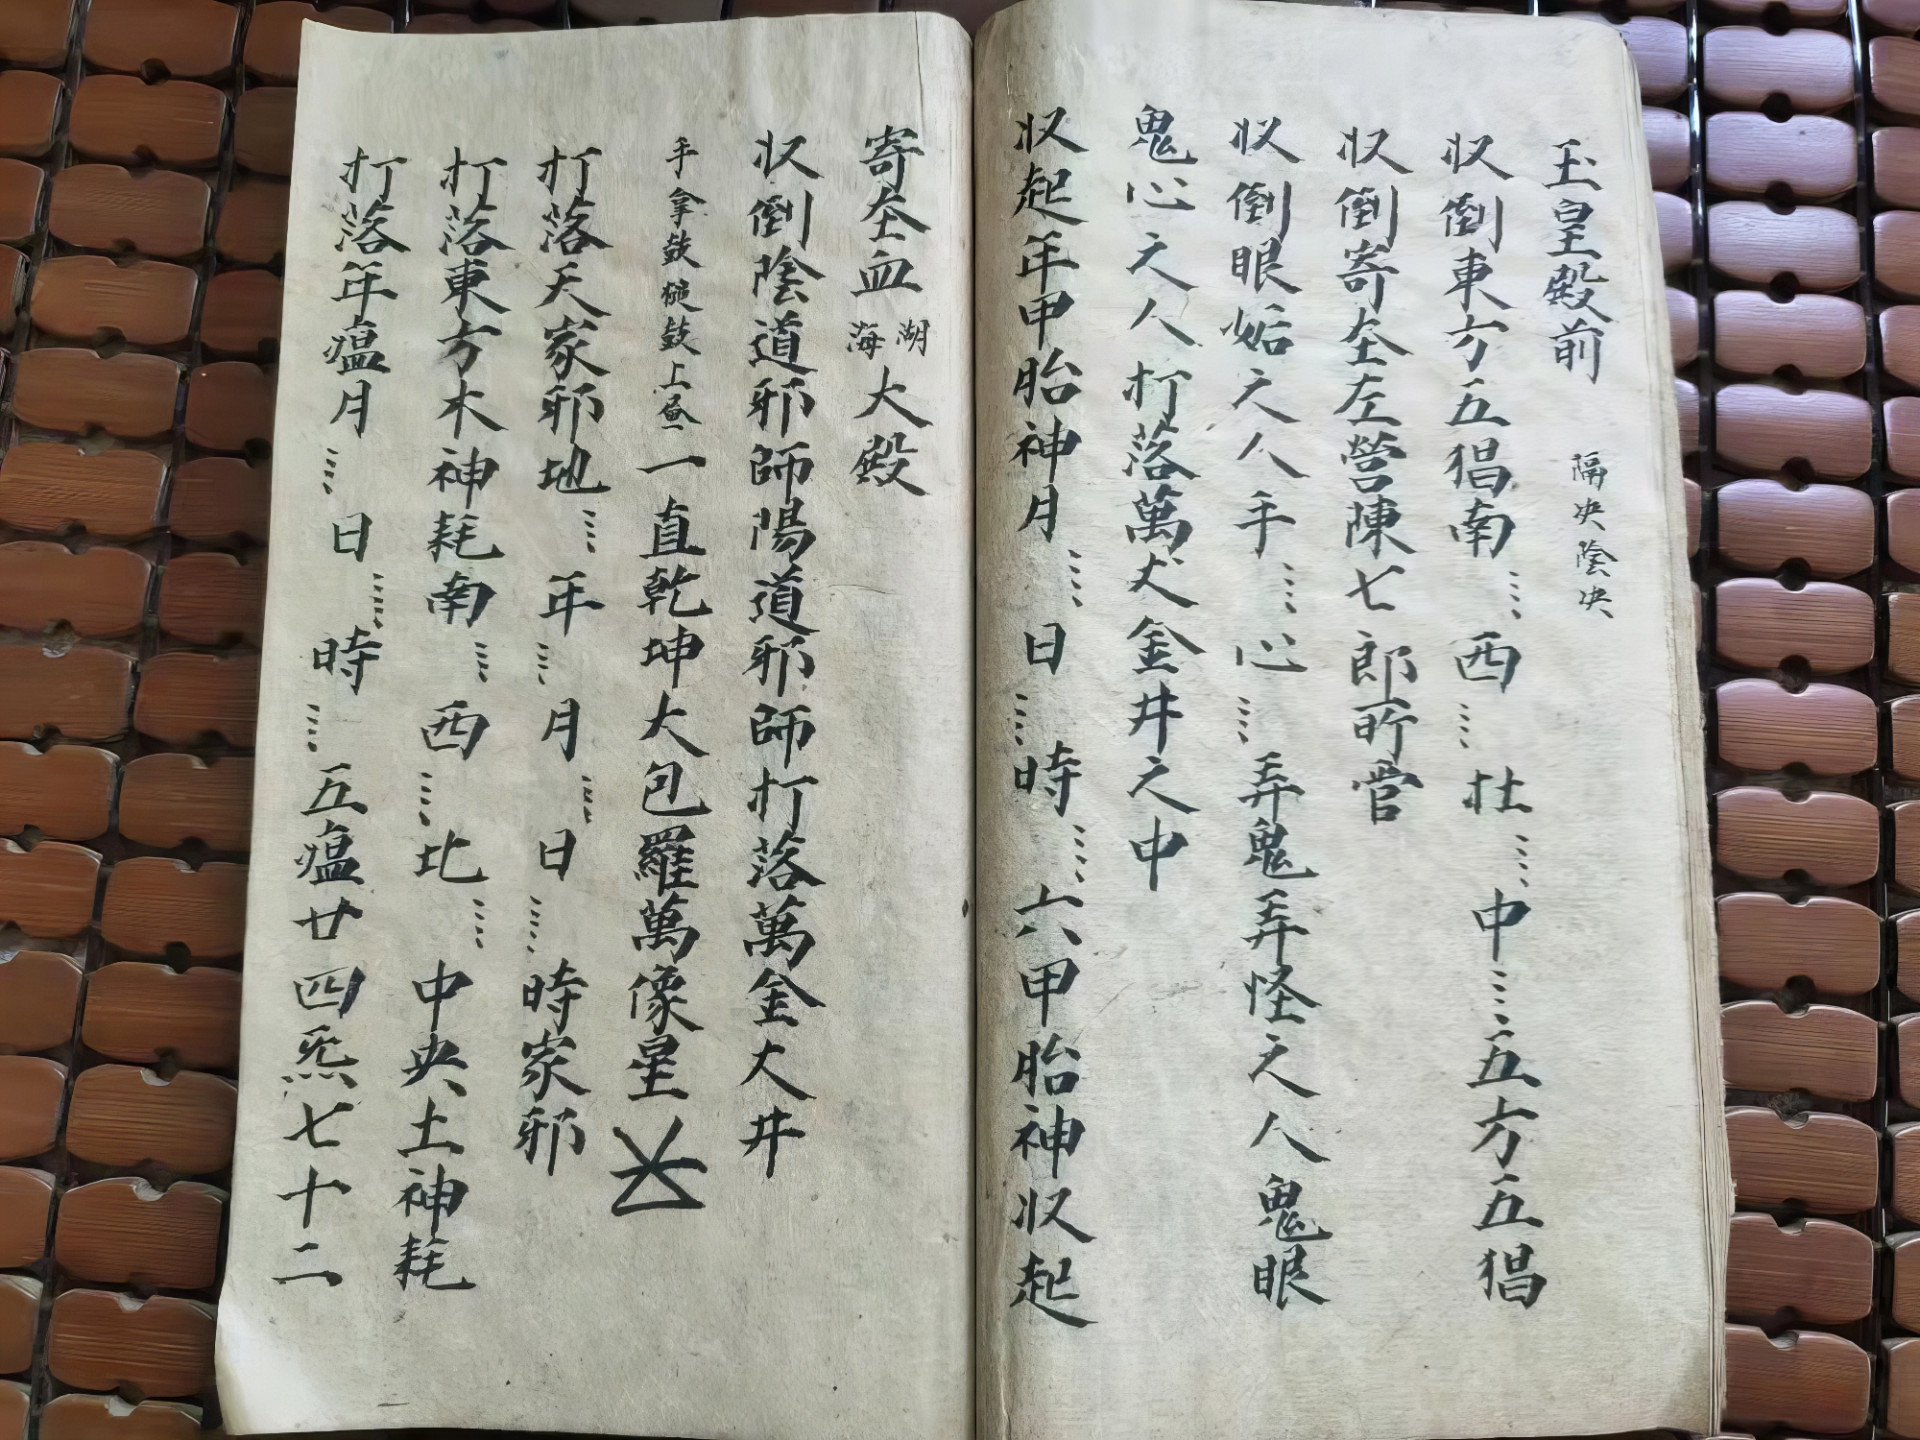 玉皇殿前 隔决陰决
収倒東方五猖南⋮西⋮杜⋮中⋮五方五猖
収倒寄夲左營陳七郎所管
収倒眼妬之人手⋮心⋮弄鬼弄怪之人鬼眼
鬼心之人打落萬丈金井之中
収起年甲胎神月⋮日⋮時⋮六甲胎神収起
寄夲血湖海大殿
収倒陰道邪師陽道邪師打落萬金大井
手拿鼓槌鼓上畫一直乾坤大包羅萬像星
打落天家邪地⋮年⋮月⋮日⋮時家邪
打落東方木神耗南⋮西⋮北⋮中央土神耗
打落年瘟月⋮日⋮時⋮五瘟廿四炁七十二